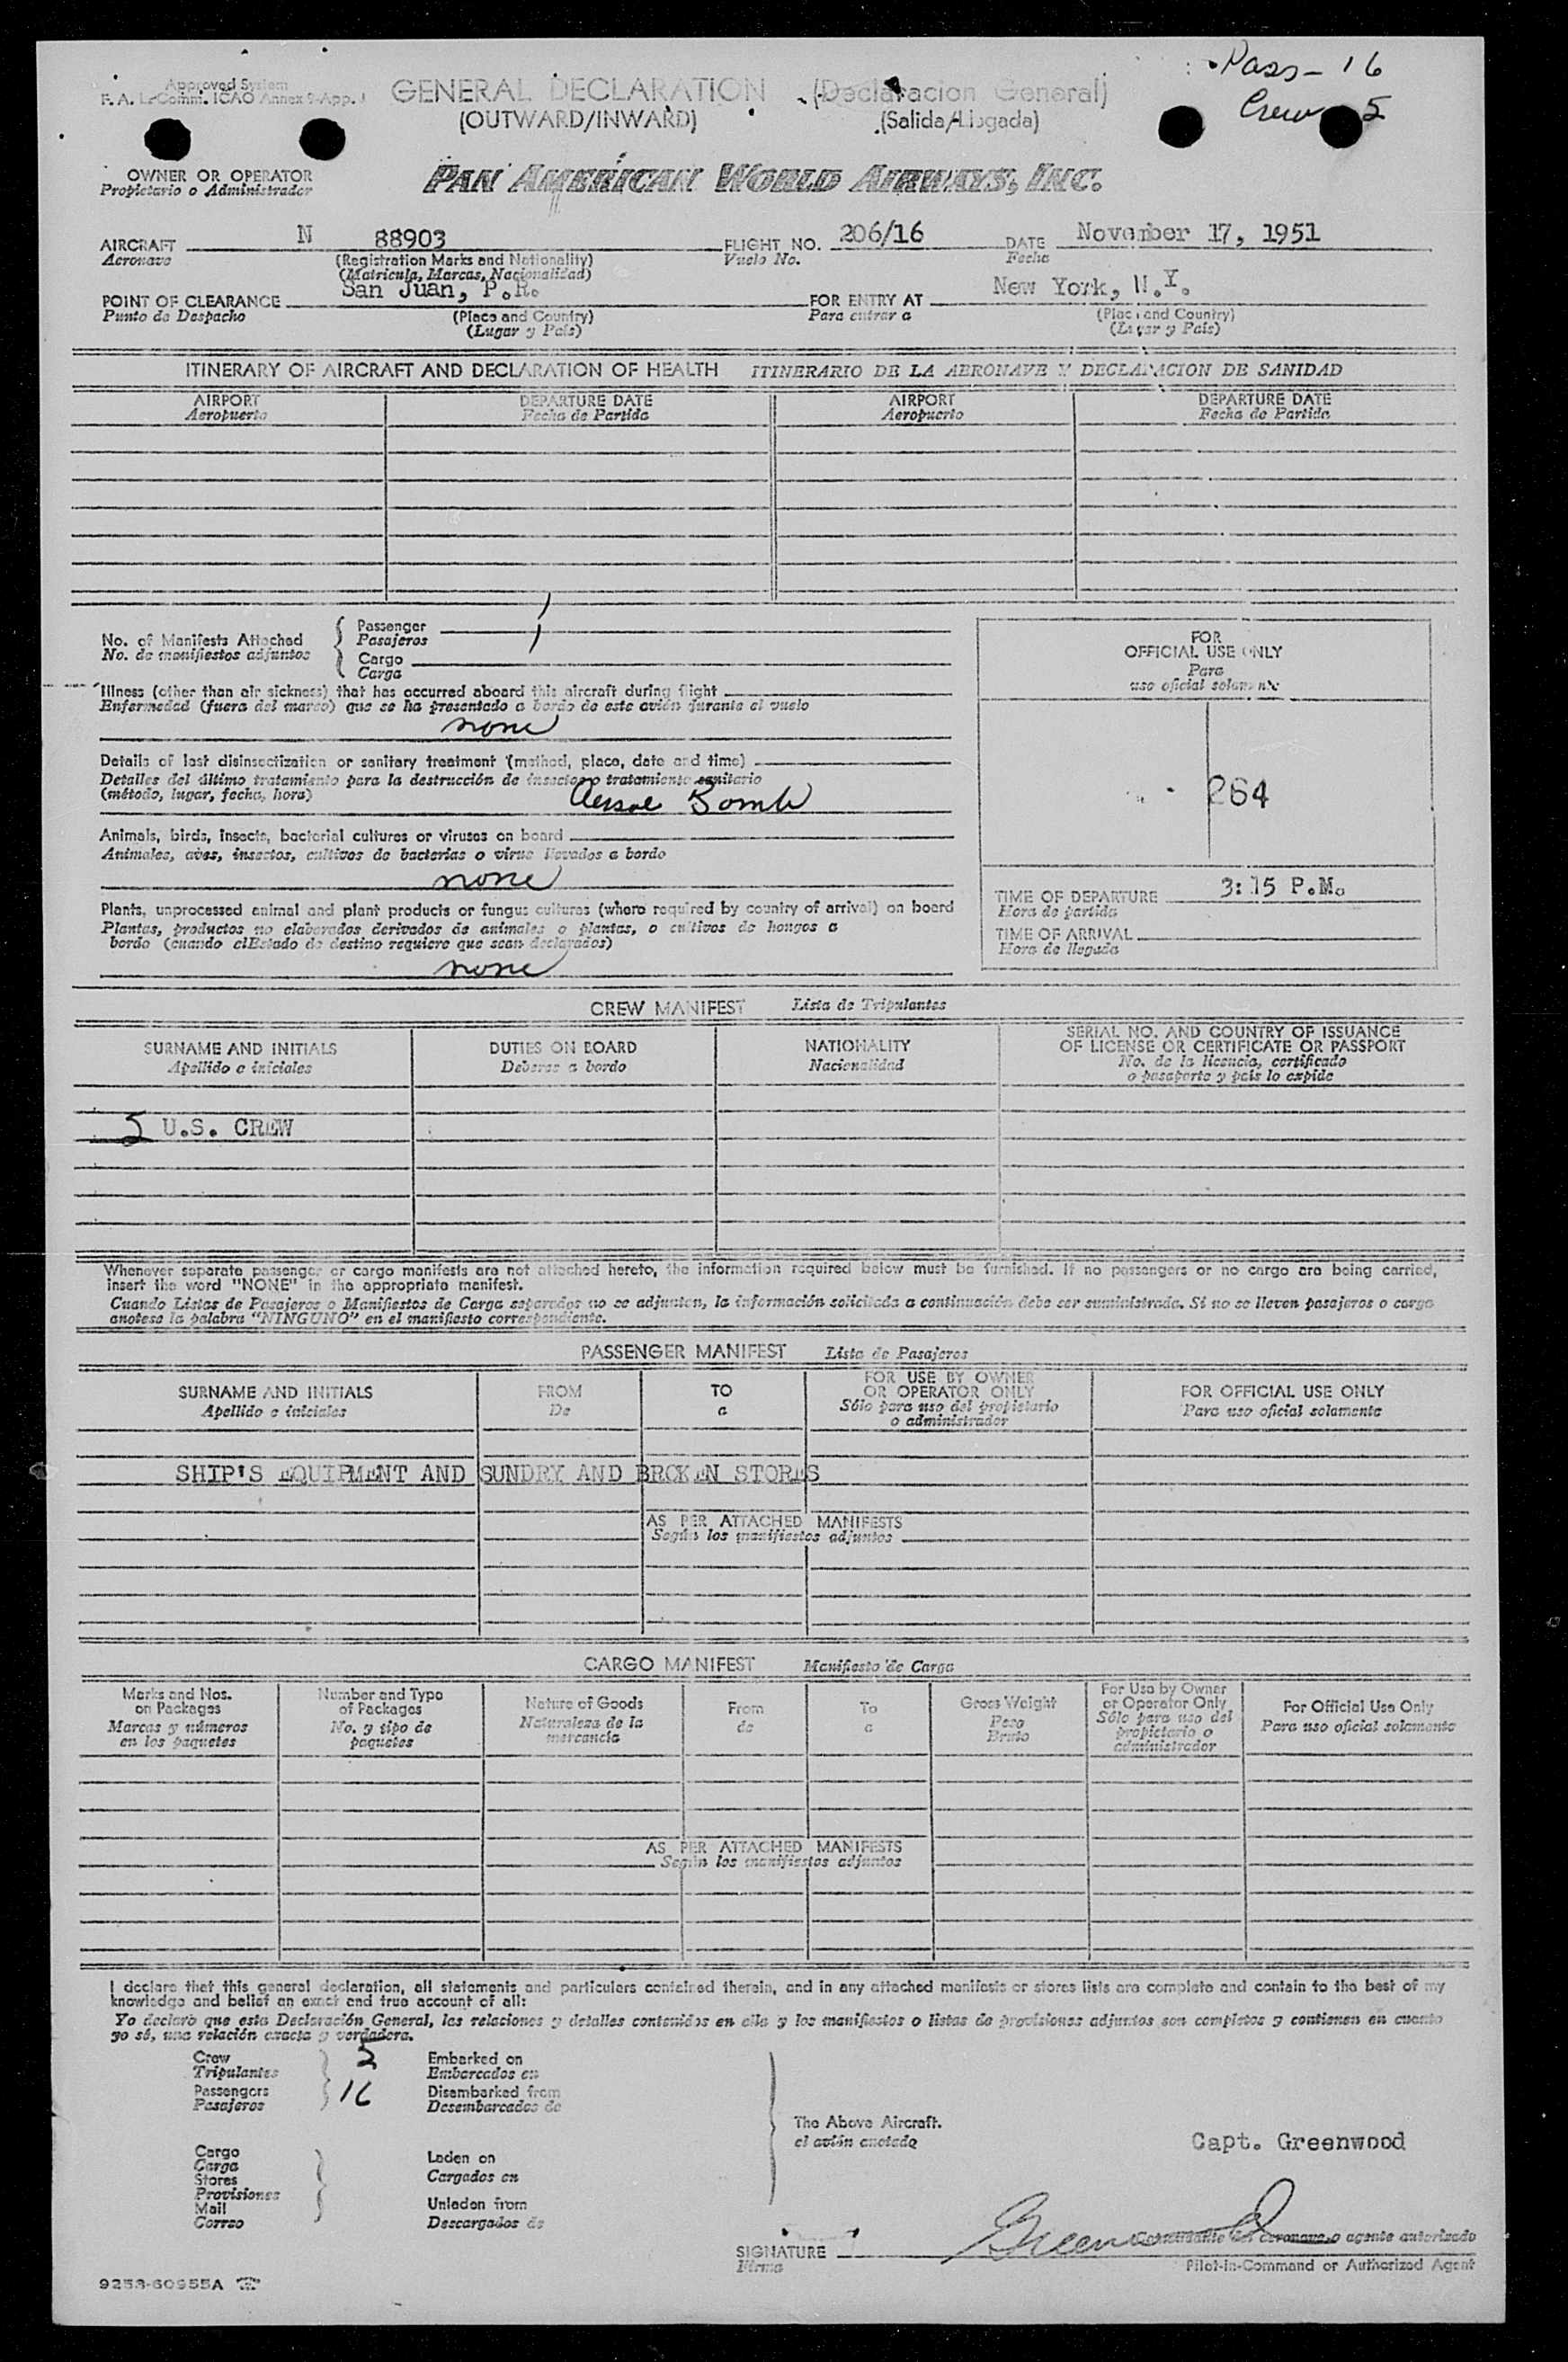 Pass - 16
Crew 5
Approved System
F. A. L. Comm. ICAO Annex 9-App. 1
GENERAL DECLARATION (Declaracion General)
(OUTWARD/INWARD) (Salida/Llegada)
OWNER OR OPERATOR
Propietario o Administrador
PAN AMERICAN WORLD AIRWAYS, INC.
AIRCRAFT N 88903 FLIGHT NO. 206/16 DATE November 17, 1951
Aeronave (Registration Marks and Nationality) Vuelo No. Fecha
(Matricula, Marcas, Nacionalidad)
POINT OF CLEARANCE San Juan, P.R. FOR ENTRY AT New York, N.Y.
Punto de Despacho (Place and Country) Para entrar a (Place and Country)
(Lugar y País) (Lugar y País)
ITINERARY OF AIRCRAFT AND DECLARATION OF HEALTH ITINERARIO DE LA AERONAVE Y DECLARACION DE SANIDAD
AIRPORT DEPARTURE DATE AIRPORT DEPARTURE DATE
Aeropuerto Fecha de Partida Aeropuerto Fecha de Partida
No. of Manifests Attached Passenger 1
No. de manifiestos adjuntos Pasajeros 1
Cargo
Carga
FOR
OFFICIAL USE ONLY
Para
uso oficial solamente
Illness (other than air sickness) that has occurred aboard this aircraft during flight
Enfermedad (fuera del mareo) que se ha presentado a bordo de este avión durante el vuelo
none
Details of last disinsectization or sanitary treatment (method, place, date and time)
Detalles del último tratamiento para la destrucción de insectos o tratamiento sanitario
(método, lugar, fecha, hora)
Bomb
264
Animals, birds, insects, bacterial cultures or viruses on board
Animales, aves, insectos, cultivos de bacterias o virus llevados a bordo
none
Plants, unprocessed animal and plant products or fungus cultures (where required by country of arrival) on board
Plantas, productos no elaborados derivados de animales o plantas, o cultivos de hongos a
bordo (cuando el Estado de destino requiere que sean declarados)
none
TIME OF DEPARTURE 3:15 P.M.
Hora de partida
TIME OF ARRIVAL
Hora de llegada
CREW MANIFEST Lista de Tripulantes
SURNAME AND INITIALS DUTIES ON BOARD NATIONALITY SERIAL NO. AND COUNTRY OF ISSUANCE
Apellido e iniciales Deberes a bordo Nacionalidad OF LICENSE OR CERTIFICATE OR PASSPORT
No. de la licencia, certificado
o pasaporte y país lo expide
5 U.S. CREW
Whenever separate passenger or cargo manifests are not attached hereto, the information required below must be furnished. If no passengers or no cargo are being carried,
insert the word "NONE" in the appropriate manifest.
Cuando Listas de Pasajeros o Manifiestos de Carga separados no se adjunten, la información solicitada a continuación debe ser suministrada. Si no se lleven pasajeros o carga
anotese la palabra "NINGUNO" en el manifiesto correspondiente.
PASSENGER MANIFEST Lista de Pasajeros
SURNAME AND INITIALS FROM TO FOR USE BY OWNER FOR OFFICIAL USE ONLY
Apellido e iniciales De a OR OPERATOR ONLY Para uso oficial solamente
Sólo para uso del propietario
o administrador
SHIP'S EQUIPMENT AND SUNDRY AND BROKEN STORES
AS PER ATTACHED MANIFESTS
Según los manifiestos adjuntos
CARGO MANIFEST Manifiesto de Carga
Marks and Nos. Number and Type Nature of Goods From To Gross Weight For Use by Owner For Official Use Only
on Packages of Packages Naturaleza de la de a Peso or Operator Only Para uso oficial solamente
Marcas y números No. y tipo de mercancia Bruto Sólo para uso del
en los paquetes paquetes propietario o
administrador
AS PER ATTACHED MANIFESTS
Según los manifiestos adjuntos
I declare that this general declaration, all statements and particulars contained therein, and in any attached manifests or stores lists are complete and contain to the best of my
knowledge and belief an exact and true account of all:
Yo declaro que esta Declaración General, las relaciones y detalles contenidos en ella y los manifiestos o listas de provisiones adjuntos son completos y contienen en cuanto
yo sé, una relación exacta y verdadera.
Crew 5 Embarked on
Tripulantes Embarcados en
Passengers 16 Disembarked from
Pasajeros Desembarcados de
The Above Aircraft.
el avión anotado
Capt. Greenwood
Cargo
Carga Laden on
Stores Cargados en
Provisiones
Mail Unladen from
Correo Descargados de
SIGNATURE Greenwood Comandante del aeronave o agente autorizado
Firma Pilot-in-Command or Authorized Agent
9253-60955A